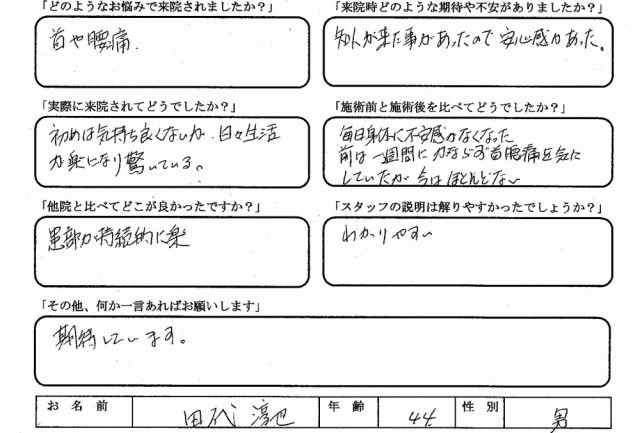 「どのようなお悩みで来院されましたか？」
首や腰痛.
「来院時どのような期待や不安がありましたか？」
知人が来た事があったので安心感があった。
「実際に来院されてどうでしたか？」
初めは気持ち良くないが、日々生活
が楽になり驚いている。
「施術前と施術後を比べてどうでしたか？」
毎日身体に不安感がなくなった
前は一週間にカならず首腰痛を気に
していたが今はほとんどない
「他院と比べてどこが良かったですか？」
患部が持続的に楽
「スタッフの説明は解りやすかったでしょうか？」
わかりやすい
「その他、何か一言あればお願いします」
期待しています。
お名前 田代 淳也 年齢 44 性別 男